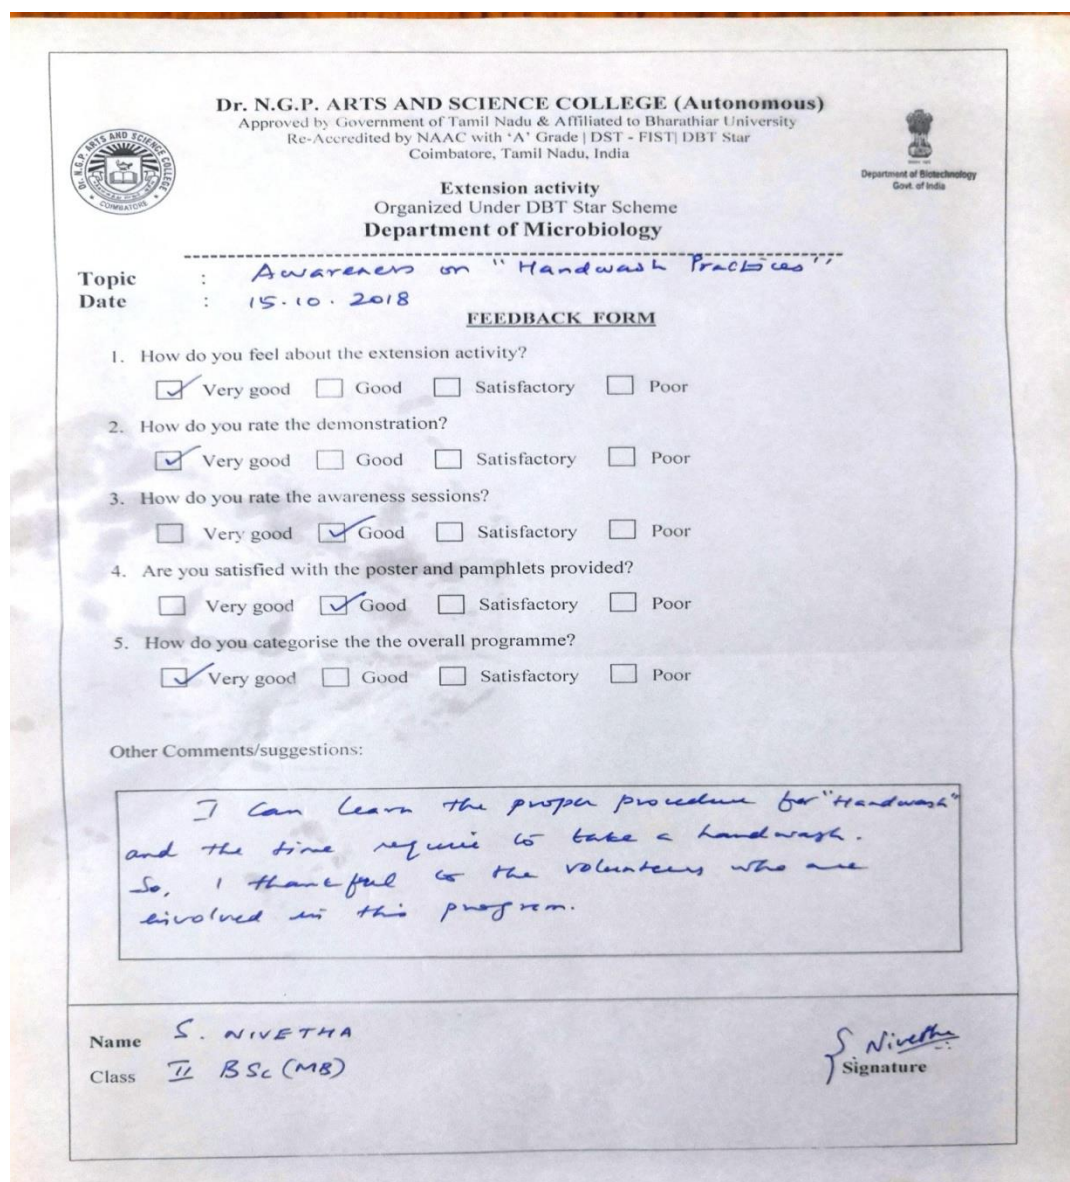 Dr. N.G.P. ARTS AND SCIENCE COLLEGE (Autonomous)
Approved by Government of Tamil Nadu & Affiliated to Bharathiar University
Re-Accredited by NAAC with ‘A’ Grade | DST - FIST| DBT Star
Coimbatore, Tamil Nadu, India
Dr. N.G.P. ARTS AND SCIENCE COLLEGE
COIMBATORE
Department of Biotechnology
Govt. of India
Extension activity
Organized Under DBT Star Scheme
Department of Microbiology
Topic : Awareness on "Handwash Practices"
Date : 15.10.2018
FEEDBACK FORM
1. How do you feel about the extension activity?
☑ Very good ☐ Good ☐ Satisfactory ☐ Poor
2. How do you rate the demonstration?
☑ Very good ☐ Good ☐ Satisfactory ☐ Poor
3. How do you rate the awareness sessions?
☐ Very good ☑ Good ☐ Satisfactory ☐ Poor
4. Are you satisfied with the poster and pamphlets provided?
☐ Very good ☑ Good ☐ Satisfactory ☐ Poor
5. How do you categorise the the overall programme?
☑ Very good ☐ Good ☐ Satisfactory ☐ Poor
Other Comments/suggestions:
I can learn the proper procedure for "Handwash"
and the time require to take a handwash.
So, I thankful to the volunteers who are
involved in this program.
Name S. NIVETHA
Class II BSc (MB)
S. Nivetha
Signature